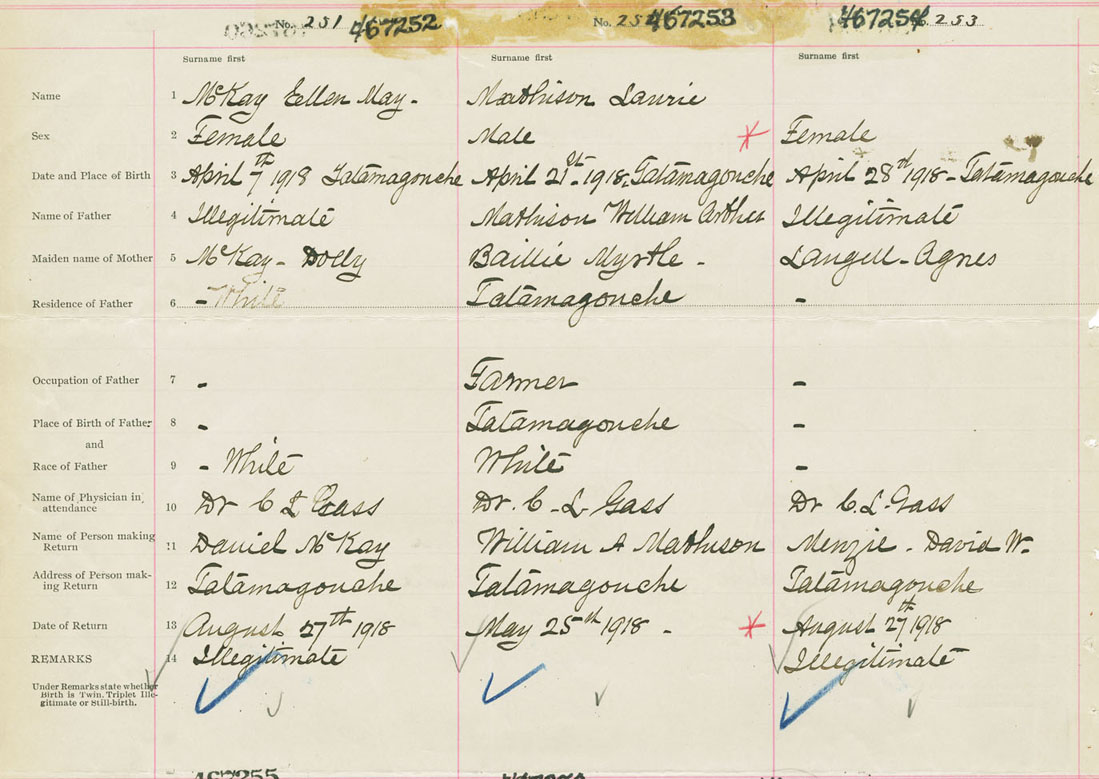 No. 251 467252 No. 25 467253 467254 253
Surname first Surname first Surname first
Name 1 McKay Ellen May - Mathison Laurie
Sex 2 Female Male Female
Date and Place of Birth 3 April 7th 1918 Tatamagouche April 21st 1918. Tatamagouche April 28th 1918 - Tatamagouche
Name of Father 4 Illegitimate Mathison William Arthur Illegitimate
Maiden name of Mother 5 McKay - Dolly Baillie Myrtle - Langell - Agnes
Residence of Father 6 - White Tatamagouche -
Occupation of Father 7 - Farmer -
Place of Birth of Father 8 - Tatamagouche -
and
Race of Father 9 - White White -
Name of Physician in attendance 10 Dr C L Gass Dr. C - L. Gass Dr C. L. Gass
Name of Person making Return 11 Daniel McKay William A Mathison Menzie - David W.
Address of Person mak-ing Return 12 Tatamagouche Tatamagouche Tatamagouche
Date of Return 13 August 27th 1918 May 25th 1918 - August 27th 1918
REMARKS 14 Illegitimate Illegitimate
Under Remarks state whether
Birth is Twin, Triplet Ille-
gitimate or Still-birth.
467255